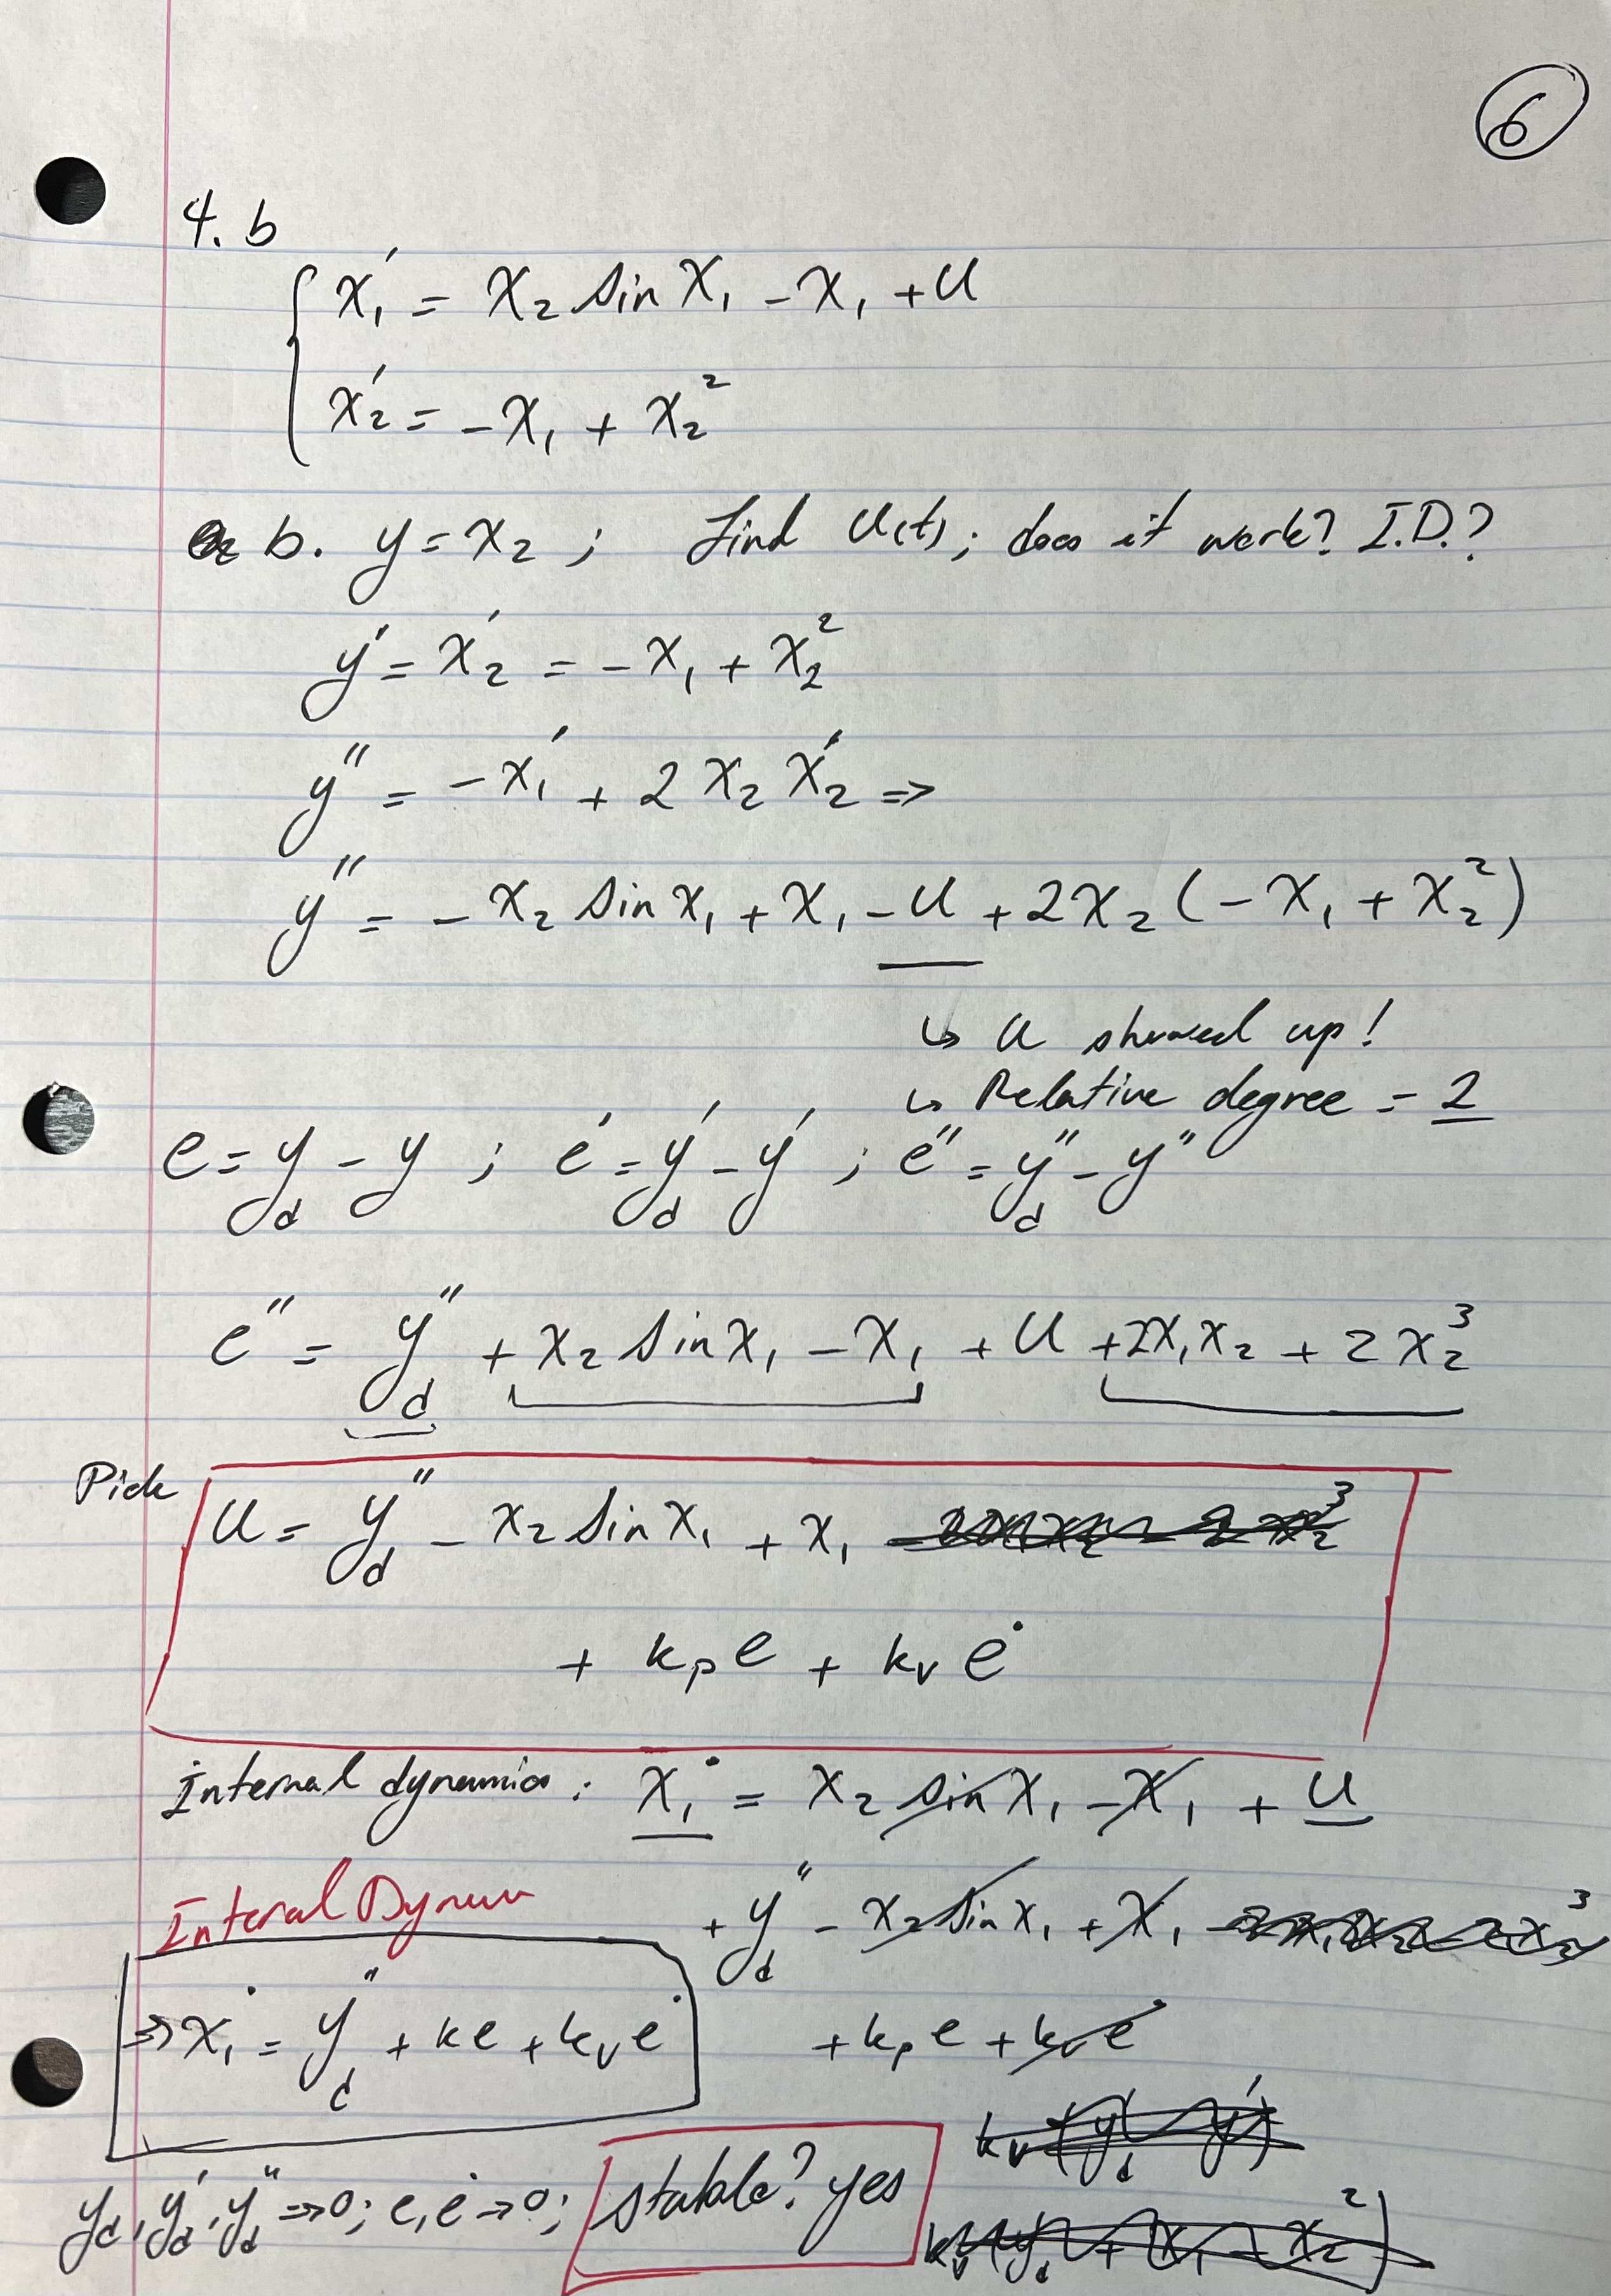 6
4. b
x₁' = x₂ sin x₁ - x₁ + u
x₂' = -x₁ + x₂²
b. y = x₂ ; find u(t); does it work? I.D.?
y' = x₂' = -x₁ + x₂²
y'' = -x₁' + 2 x₂ x₂' =>
y'' = -x₂ sin x₁ + x₁ - u + 2x₂ (-x₁ + x₂²)
↳ u showed up!
↳ Relative degree = 2
e = y_d - y ; e' = y_d' - y' ; e'' = y_d'' - y''
e'' = y_d'' + x₂ sin x₁ - x₁ + u + 2x₁x₂ + 2x₂³
Pick
u = y_d'' - x₂ sin x₁ + x₁
+ k_p e + k_v ė
Internal dynamics : ẋ₁ = x₂ sin x₁ - x₁ + u
Interal Dynam
+ y_d'' - x₂ sin x₁ + x₁
=> ẋ₁ = y_d'' + ke + k_v ė
+ k_p e + k_v ė
k_v (y_d' - y')
y_d, y_d', y_d'' => 0; e, ė -> 0; stable? yes